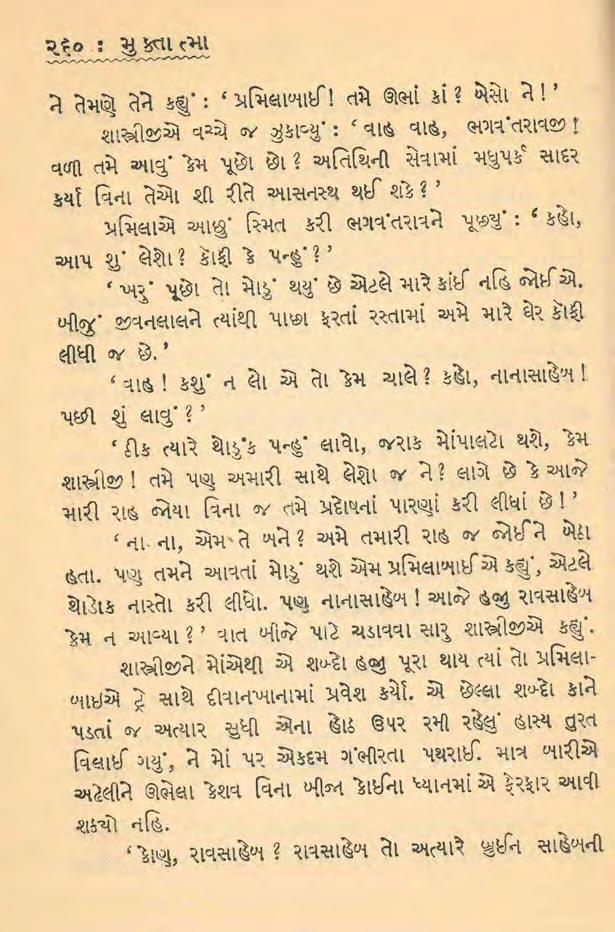 ૨૬૦ : મુક્તાત્મા
ને તેમણે તેને કહ્યું : ‘ પ્રમિલાબાઈ! તમે ઊભાં કાં? બેસો ને!’
શાસ્ત્રીજીએ વચ્ચે જ ઝુકાવ્યું : ‘ વાહ વાહ, ભગવંતરાવજી!
વળી તમે આવું કેમ પૂછો છો? અતિથિની સેવામાં મધુપર્ક સાદર
કર્યા વિના તેઓ શી રીતે આસનસ્થ થઈ શકે?’
પ્રમિલાએ આછું સ્મિત કરી ભગવંતરાવને પૂછ્યું : ‘ કહો,
આપ શું લેશો? કૉફી કે પન્હું?’
‘ ખરું પૂછો તો મોડું થયું છે એટલે મારે કાંઈ નહિ જોઈએ.
બીજું જીવનલાલને ત્યાંથી પાછા ફરતાં રસ્તામાં અમે મારે ઘેર કૉફી
લીધી જ છે.’
‘ વાહ! કશું ન લો એ તો કેમ ચાલે? કહો, નાનાસાહેબ!
પછી શું લાવું?’
‘ ઠીક ત્યારે થોડુંક પન્હું લાવો, જરાક મોંપાલટો થશે, કેમ
શાસ્ત્રીજી! તમે પણ અમારી સાથે લેશો જ ને? લાગે છે કે આજે
મારી રાહ જોયા વિના જ તમે પ્રદોષનાં પારણાં કરી લીધાં છે!’
‘ ના ના, એમ તે બને? અમે તમારી રાહ જ જોઈને બેઠા
હતા. પણ તમને આવતાં મોડું થશે એમ પ્રમિલાબાઈએ કહ્યું, એટલે
થોડોક નાસ્તો કરી લીધો. પણ નાનાસાહેબ! આજે હજી રાવસાહેબ
કેમ ન આવ્યા?’ વાત બીજે પાટે ચડાવવા સારુ શાસ્ત્રીજીએ કહ્યું.
શાસ્ત્રીજીને મોંએથી એ શબ્દો હજી પૂરા થાય ત્યાં તો પ્રમિલા-
બાઇએ ટ્રે સાથે દીવાનખાનામાં પ્રવેશ કર્યો. એ છેલ્લા શબ્દો કાને
પડતાં જ અત્યાર સુધી એના હોઠ ઉપર રમી રહેલું હાસ્ય તુરત
વિલાઈ ગયું, ને મોં પર એકદમ ગંભીરતા પથરાઈ. માત્ર બારીએ
અઢેલીને ઊભેલા કેશવ વિના બીજા કોઈના ધ્યાનમાં એ ફેરફાર આવી
શક્યો નહિ.
‘ કોણ, રાવસાહેબ? રાવસાહેબ તો અત્યારે બ્રુઈન સાહેબની